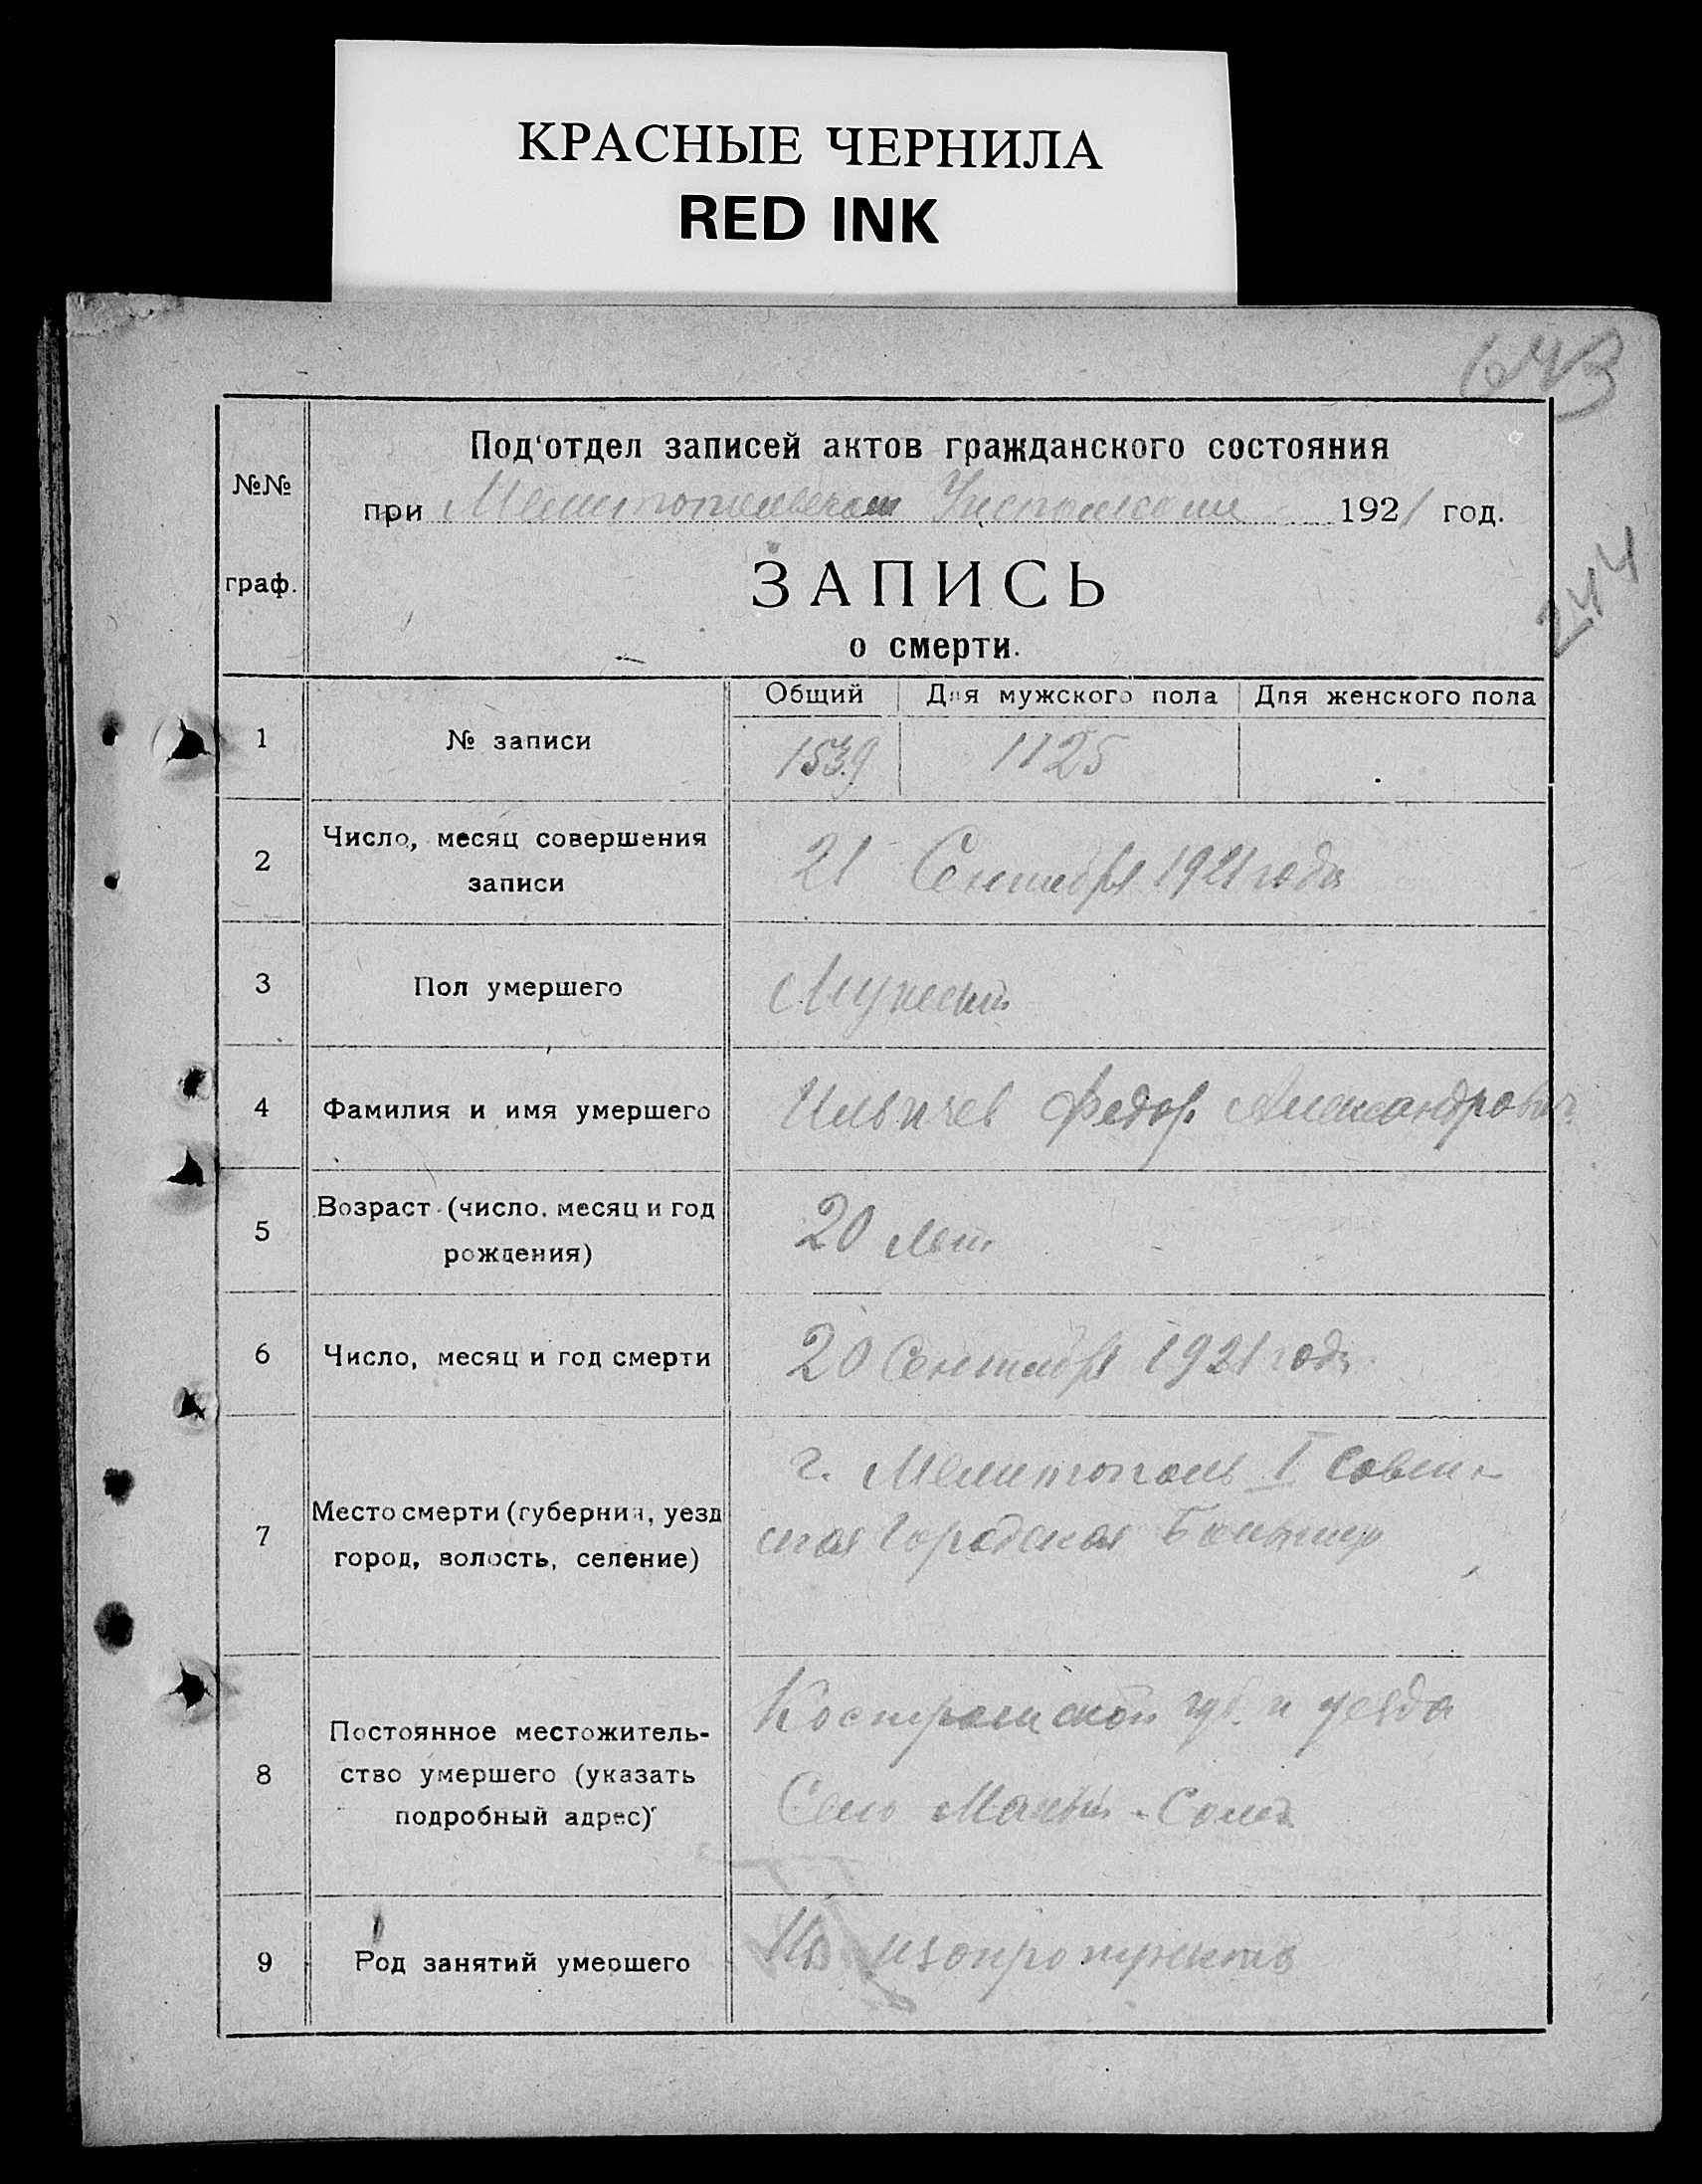 КРАСНЫЕ ЧЕРНИЛА
RED INK
643
244
Под'отдел записей актов гражданского состояния
№№
при Мелитопольском Уисполкоме 1921 год.
граф.
ЗАПИСЬ
о смерти.
Общий Для мужского пола Для женского пола
1 № записи 1539 1125
2 Число, месяц совершения
записи
21 Сентября 1921 года
3 Пол умершего Мужской
4 Фамилия и имя умершего Ильичев Федор Александрович
5 Возраст (число, месяц и год
рождения)
20 лет
6 Число, месяц и год смерти 20 Сентября 1921 года
7 Место смерти (губерния, уезд
город, волость, селение)
г. Мелитополь I Совет-
ская Городская Больница
8 Постоянное местожитель-
ство умершего (указать
подробный адрес)
Костромской губ. и уезда
Село
9 Род занятий умершего